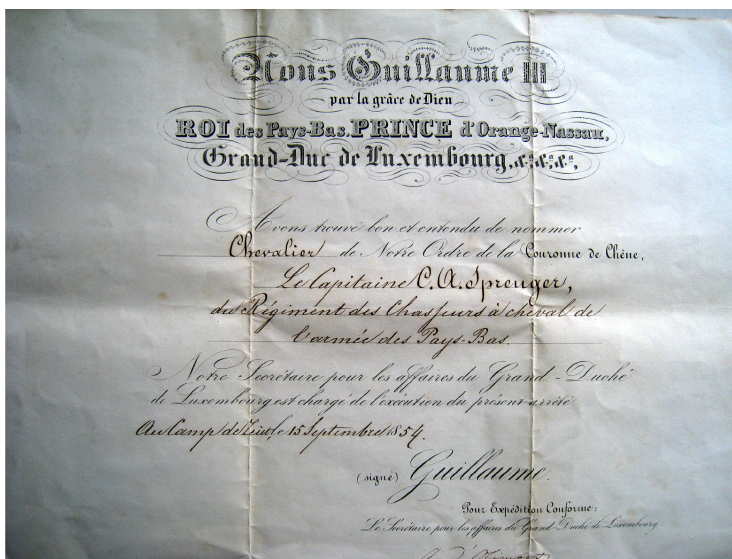 Nous Guillaume III
par la grâce de Dieu
ROI des Pays-Bas, PRINCE d'Orange-Nassau,
Grand-Duc de Luxembourg, &.a &.a &.a,
Avons trouvé bon et entendu de nommer
Chevalier de Notre Ordre de la Couronne de Chêne,
Le Capitaine C. A. Sprenger,
du Régiment des Chasseurs à cheval de
l'armée des Pays-Bas.
Notre Secrétaire pour les affaires du Grand-Duché
de Luxembourg est chargé de l'exécution du présent arrêté
Au Camp de Zeist, le 15 Septembre 1854.
(signé) Guillaume.
Pour Expédition Conforme:
Le Secrétaire pour les affaires du Grand-Duché de Luxembourg